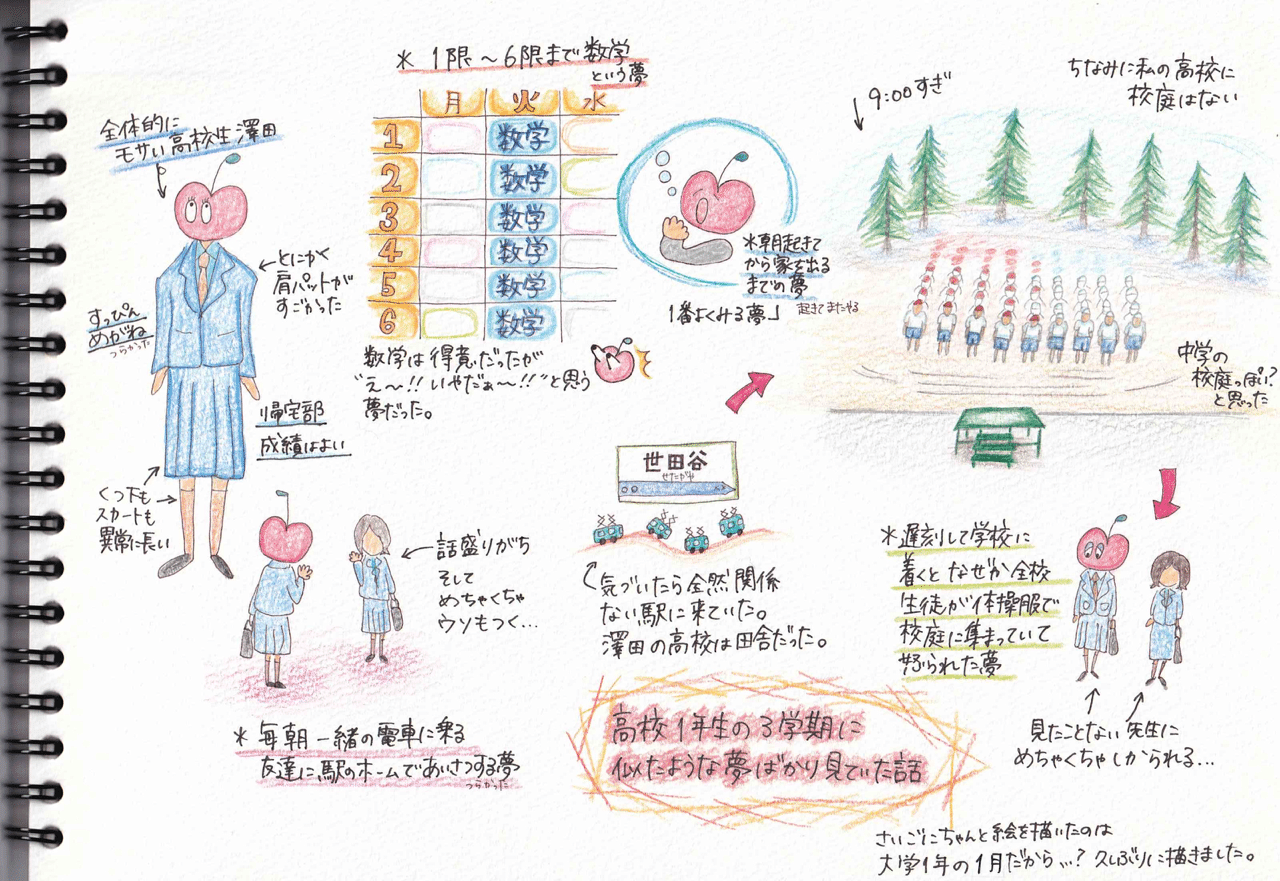 全体的に
モサい高校生澤田
とにかく
肩パットが
すごかった
すっぴん
めがね
つらかった
帰宅部
成績はよい
くつ下も
スカートも
異常に長い
* 1限～6限まで数学
という夢
月 火 水
1 数学
2 数学
3 数学
4 数学
5 数学
6 数学
数学は得意だったが
"え～!!いやだぁ～!!"と思う
夢だった。
*朝起きて
から家を出る
までの夢
1番よくみる夢
起きてまたやる
9:00すぎ
ちなみに私の高校に
校庭はない
中学の
校庭っぽい?
と思った
世田谷
せたがや
気づいたら全然関係
ない駅に来ていた。
澤田の高校は田舎だった。
話盛りがち
そして
めちゃくちゃ
ウソもつく…
* 毎朝一緒の電車に乗る
友達に駅のホームであいさつする夢
つらかった
*遅刻して学校に
着くとなぜか全校
生徒が体操服で
校庭に集まっていて
怒られた夢
見たことない先生に
めちゃくちゃしかられる…
高校1年生の3学期に
似たような夢ばかり見ていた話
さいごにちゃんと絵を描いたのは
大学1年の1月だから…?久しぶりに描きました。